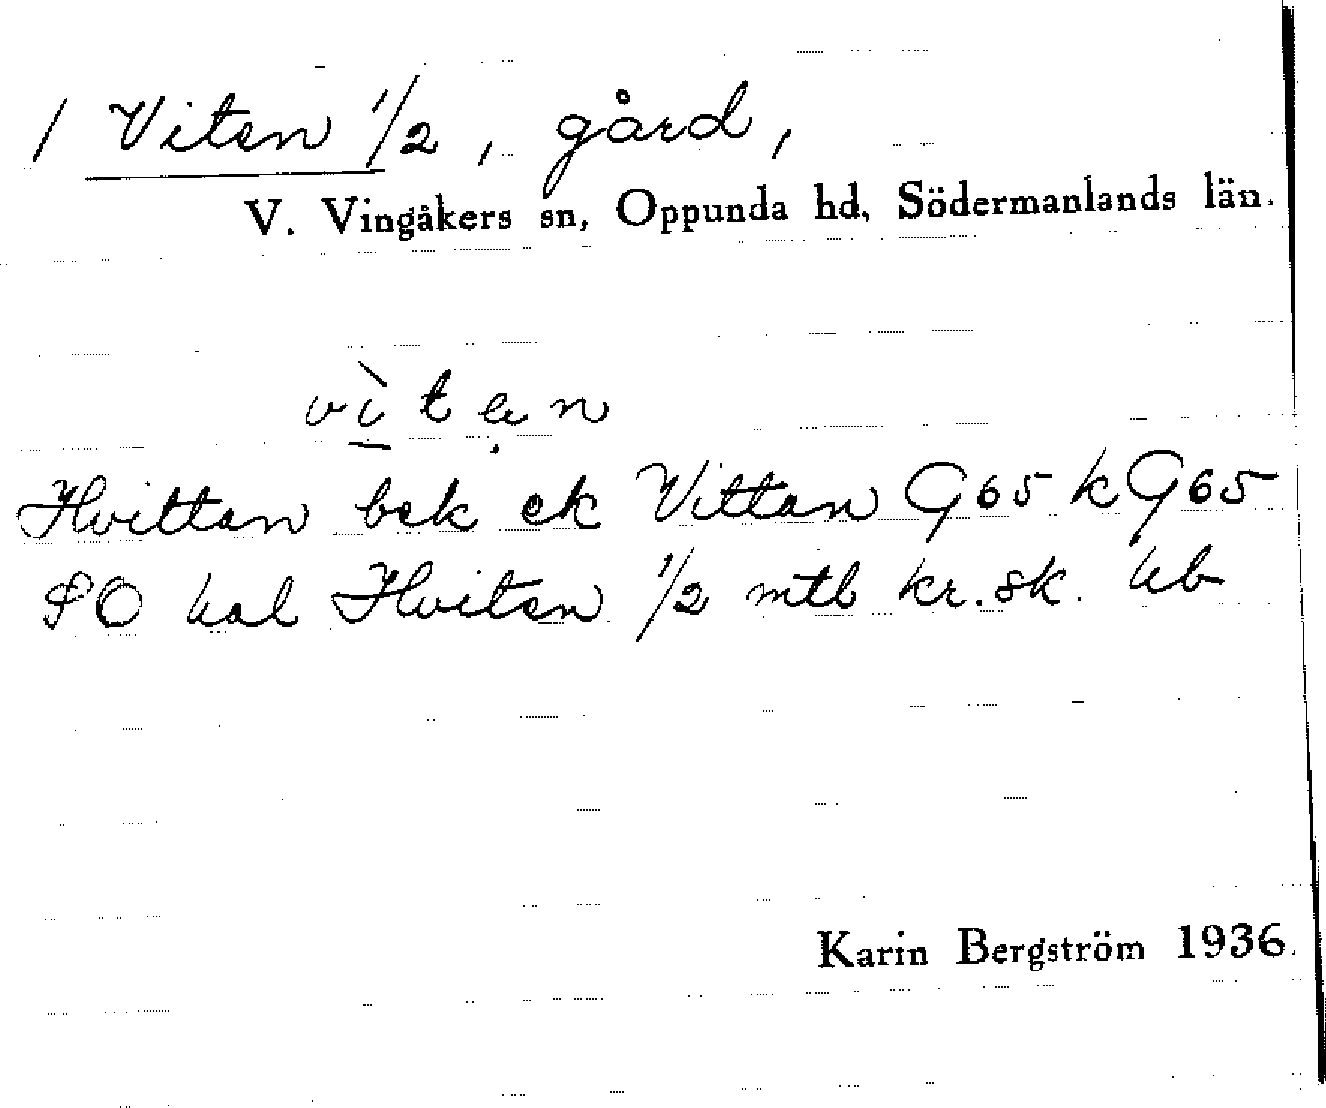 / Viten 1/2, gård,
V. Vingåkers sn, Oppunda hd, Södermanlands län.
vìtẹn
Hvittan bek ek Vittan G65 k G65
SO kal Hviten 1/2 mtl kr.sk. kb
Karin Bergström 1936.